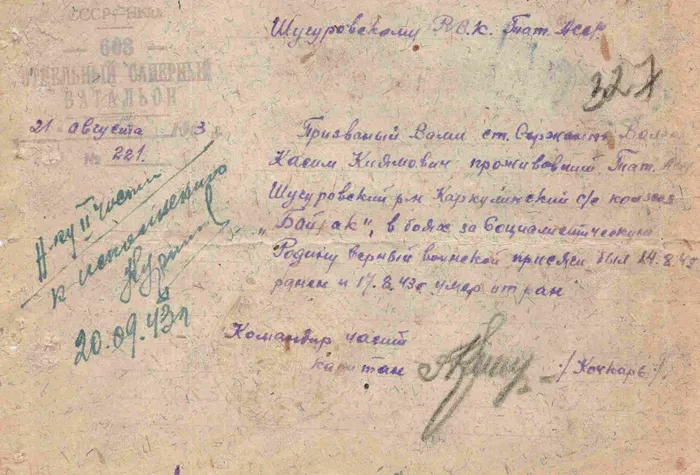 СССР-НКО
608
ОТДЕЛЬНЫЙ САПЕРНЫЙ
БАТАЛЬОН
21 августа 1943
№ 221.
Шугуровскому Р.В.К. Тат. Асср.
327
Призваный Вами ст. Сержант
Касим Киямович проживавший Тат.
Шугуровский р-н Каркулинский с/с колхоз
„Байрак", в боях за Социалистическую
Родину верный воинской присяги был 14.8.43
ранен и 17.8.43г умер от ран
Командир части
капитан
II части
к исполнению
20.09.43г